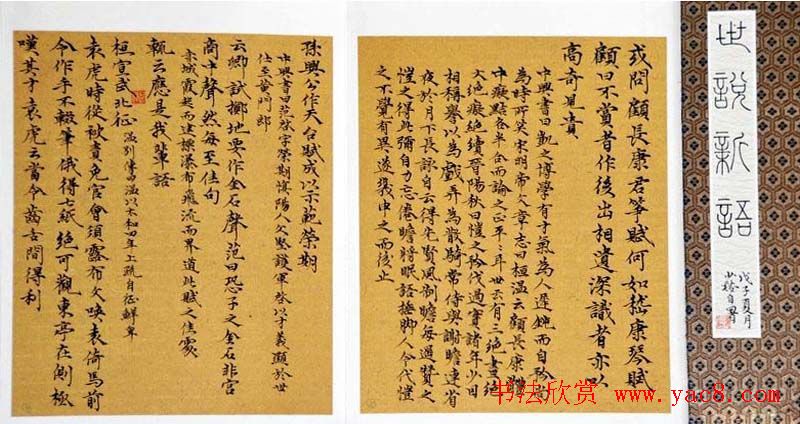 世說新語
戊子夏月
或問顧長康君箏賦何如嵇康琴賦
顧曰不賞者作後出相遺深識者亦以
高奇見貴
中興書曰愷之博學有才氣為人遲鈍而自矜尚
為時所笑宋明帝文章志曰桓溫云顧長康體
中癡黠各半合而論之正平平耳世云有三絕畫絕
文絕癡絕續晉陽秋曰愷之矜伐過實諸年少因
相稱譽以為戲弄為散騎常侍與謝瞻連省
夜於月下長詠自云得先賢風制瞻每遙贊之
愷之得此彌自力忘倦瞻將眠語搥脚人令代愷
之不覺有異遂幾申之而後止
孫興公作天台賦成以示範榮期
中興書曰范啓字榮期慎陽人父堅護軍啓以才義顯於世
仕至黃門郎
云卿試擲地要作金石聲范曰恐子之金石非宮
商中聲然每至佳句
赤城霞起而建標瀑布飛流而界道此賦之佳處
輒云應是我輩語
桓宣武北征
溫別傳曰溫以太和四年上疏自征鮮卑
袁虎時從被責免官會須露布文喚袁倚馬前
令作手不輟筆俄得七紙絕可觀東亭在側極
嘆其才袁虎云當令齒舌間得利
书法欣赏 www.yac8.com